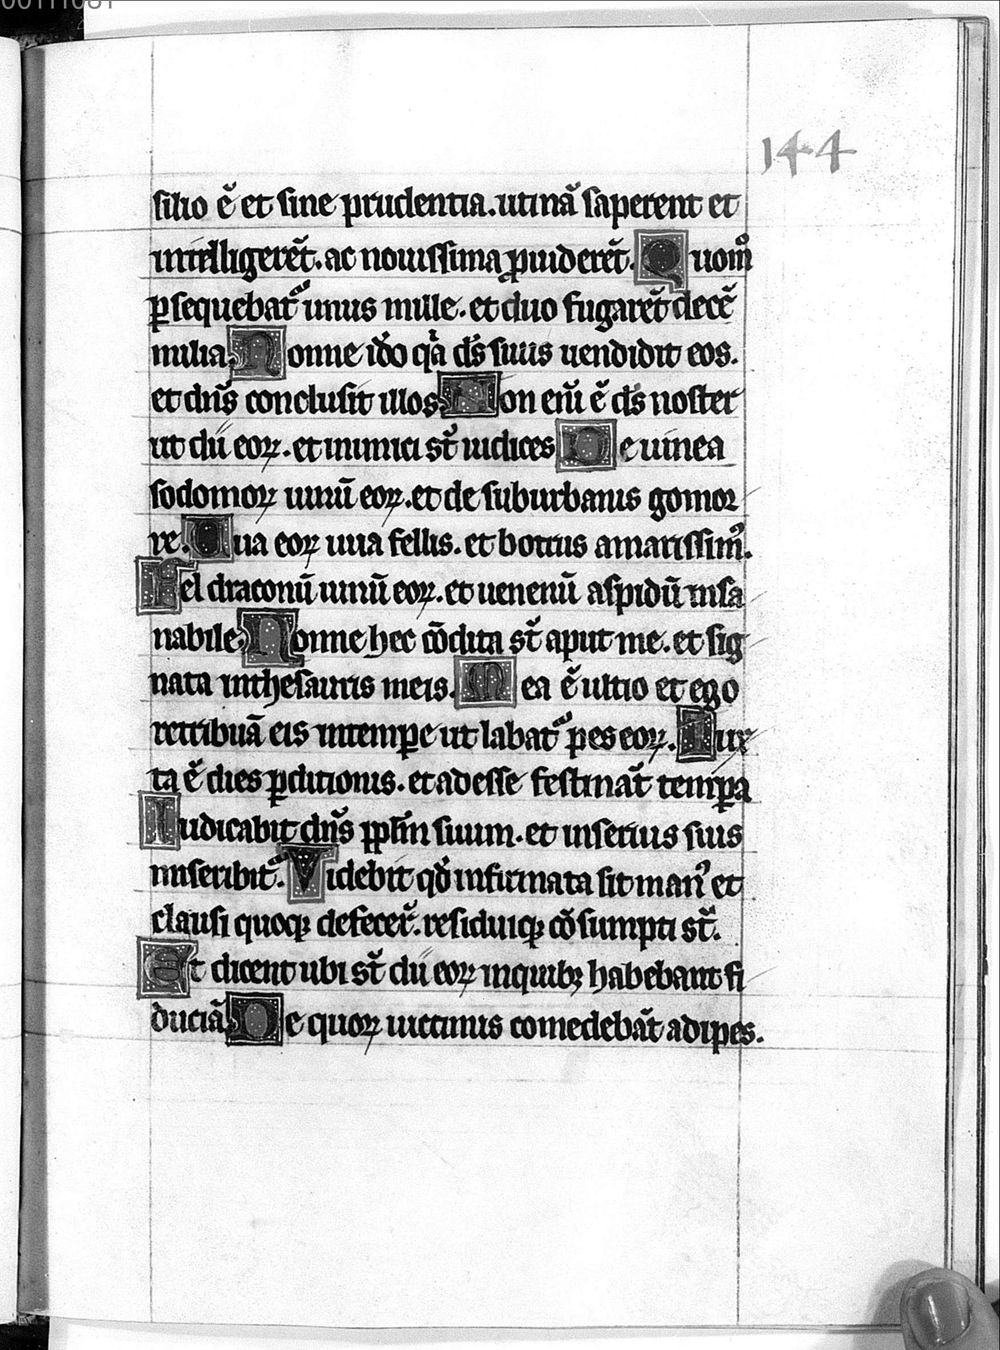 00111081
144
silio ē et sine prudentia. utinā saperent et
intelligerēt. ac nouissima ꝓuiderēt. Quom̊
ꝑsequebat᷑ unus mille. et duo fugarēt decē
milia. Nonne iđo qͥa ds̄ suus uendidit eos.
et dn̄s conclusit illos. Non eni̅ ē ds̄ noster
ut dii eoꝝ. et inimici st̄ iudices De uinea
sodomoꝝ uinū eoꝝ. et de suburbanis gomor
re. Uua eoꝝ uua fellis. et botrus amarissimꝰ.
Fel draconū uinū eoꝝ. et uenenū aspidū insa
nabile. Nonne hec cōdita st̄ aput me. et sig
nata in thesauris meis. Mea ē ultio et ego
retribuā eis in tempe ut labat᷑ pes eoꝝ. Iux
ta ē dies ꝑditionis. et adesse festināt temꝑa
Iudicabit dn̄s ppl̄m suum. et in seruis suis
miserebit᷑. Videbit qđ infirmata sit manꝰ et
clausi quoqꝫ defecer̄. residuiqꝫ cōsumpti st̄.
Et dicent ubi st̄ dii eoꝝ in quibꝫ habebant fi
duciā. De quoꝝ uictimis comedebāt adipes.